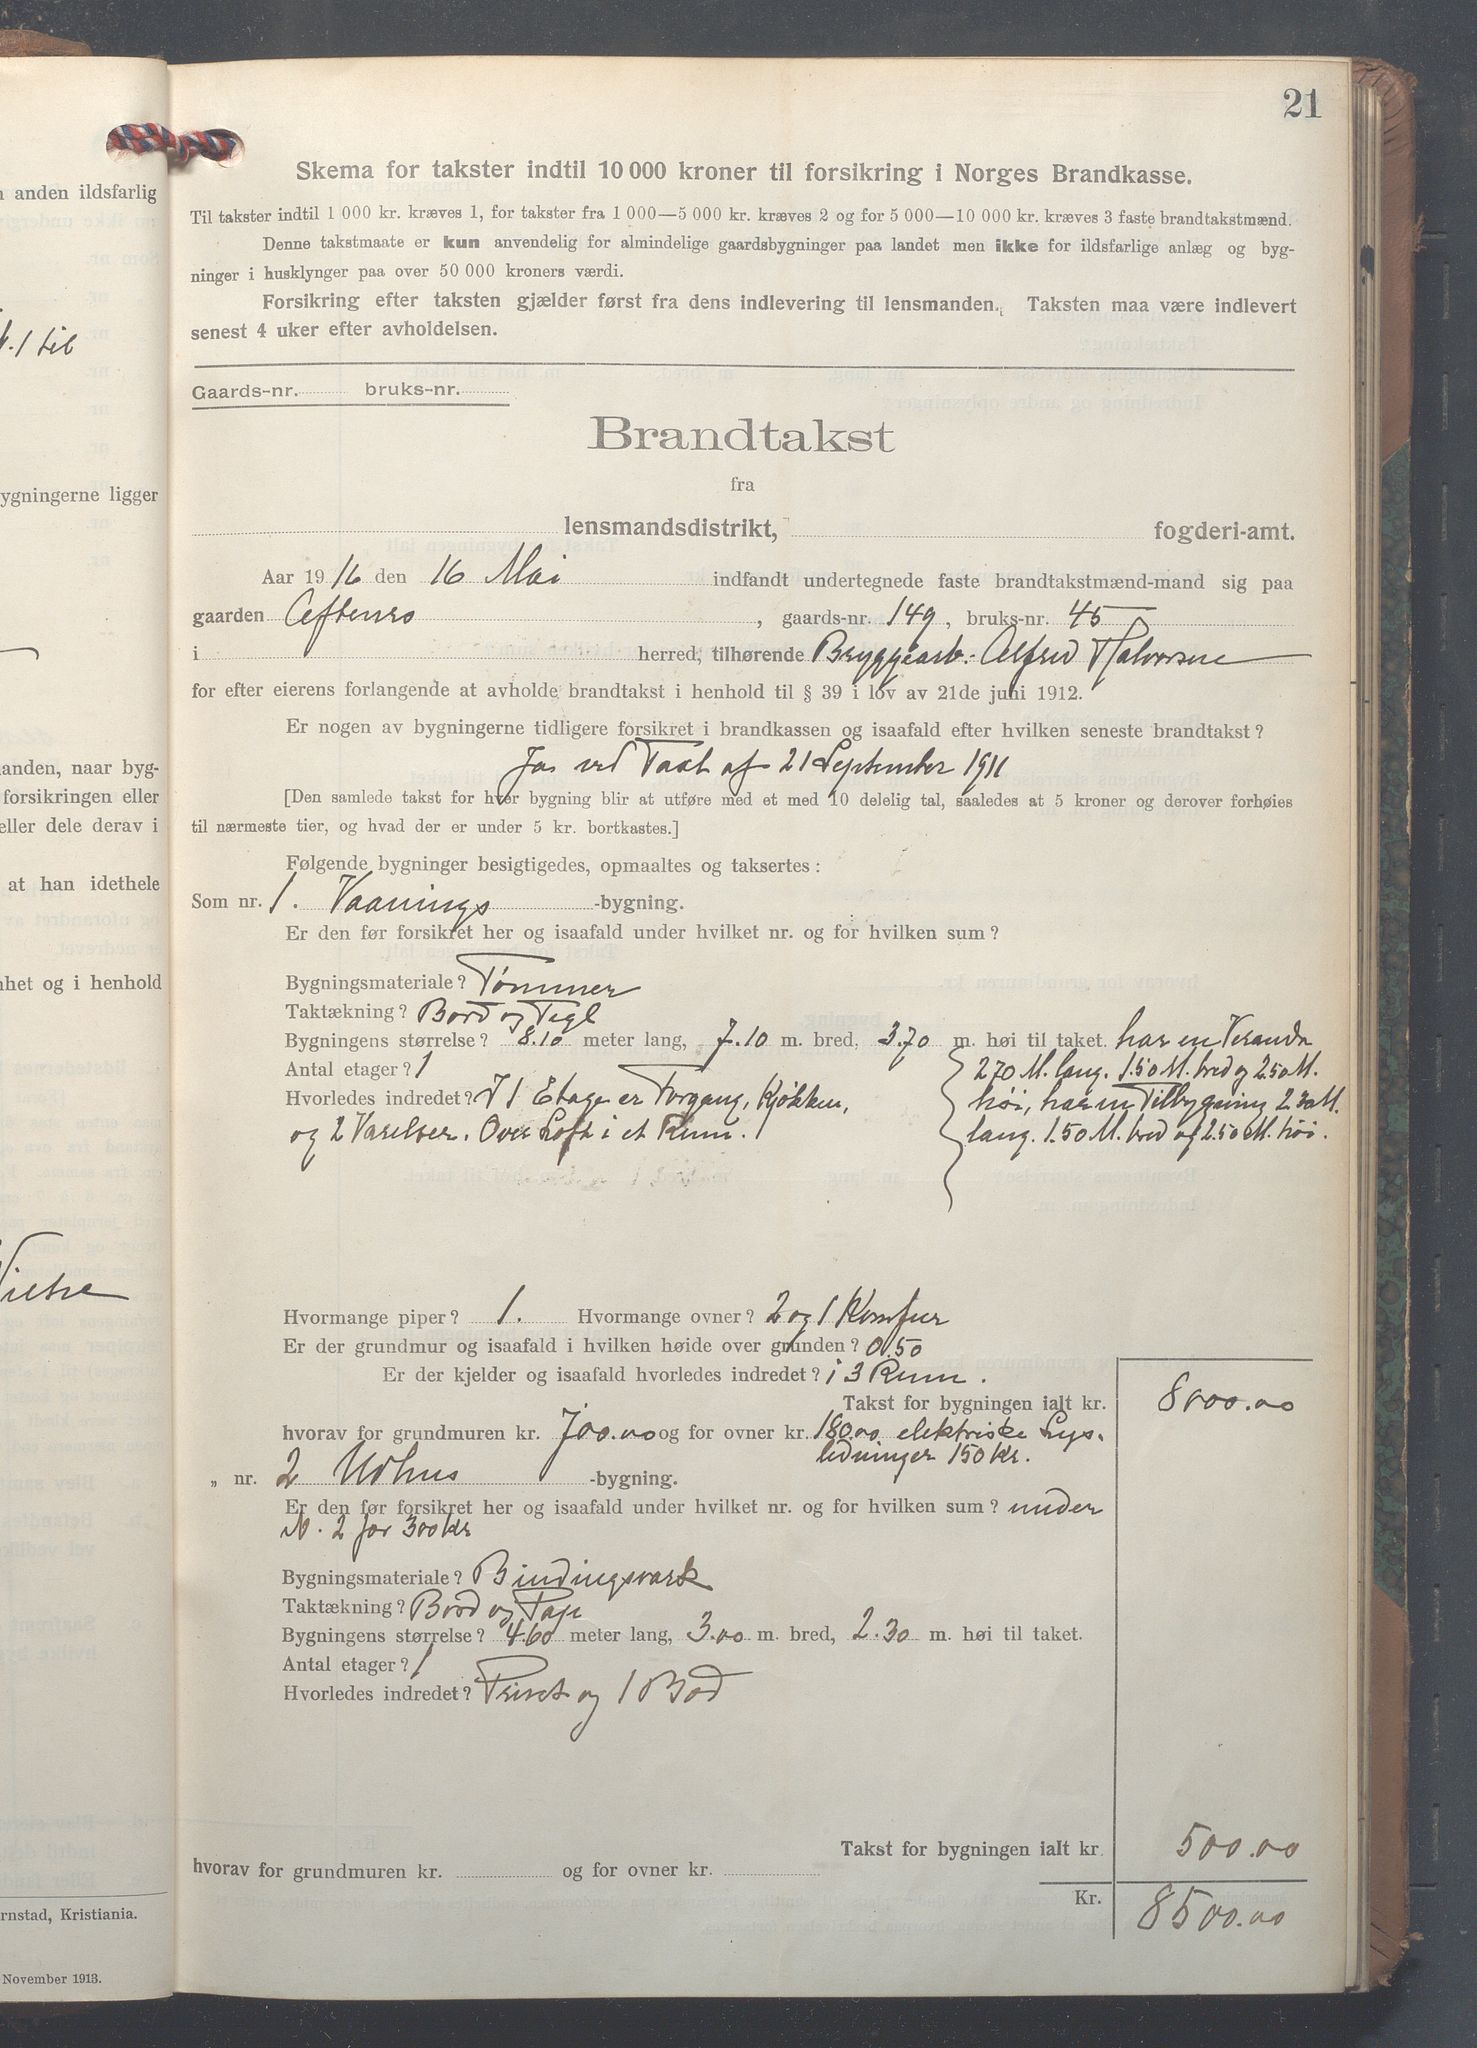 21
n anden ildsfarlig
Skema for takster indtil 10 000 kroner til forsikring i Norges Brandkasse.
Til takster indtil 1 000 kr. kræves 1, for takster fra 1 000—5 000 kr. kræves 2 og for 5 000—10 000 kr. kræves 3 faste brandtakstmænd.
Denne takstmaate er kun anvendelig for almindelige gaardsbygninger paa landet men ikke for ildsfarlige anlæg og byg-
ninger i husklynger paa over 50 000 kroners værdi.
Forsikring efter taksten gjælder først fra dens indlevering til lensmanden. Taksten maa være indlevert
senest 4 uker efter avholdelsen.
1 til
Gaards-nr. bruks-nr.
Brandtakst
fra
ygningerne ligger
lensmandsdistrikt, fogderi-amt.
Aar 1916 den 16 Mai indfandt undertegnede faste brandtakstmænd-mand sig paa
gaarden Aftenro, gaards-nr. 149, bruks-nr. 45
i herred, tilhørende Bryggearb. Alfred Halvorsen
for efter eierens forlangende at avholde brandtakst i henhold til § 39 i lov av 21de juni 1912.
Er nogen av bygningerne tidligere forsikret i brandkassen og isaafald efter hvilken seneste brandtakst?
Ja ved Taxt af 21 September 1911
anden, naar byg-
forsikringen eller
eller dele derav i
[Den samlede takst for hver bygning blir at utføre med et med 10 delelig tal, saaledes at 5 kroner og derover forhøies
til nærmeste tier, og hvad der er under 5 kr. bortkastes.]
at han idethele
Følgende bygninger besigtigedes, opmaaltes og taksertes:
Som nr. 1. Vaanings -bygning.
Er den før forsikret her og isaafald under hvilket nr. og for hvilken sum?
nhet og i henhold
Bygningsmateriale? Tømmer
Taktækning? Bord og Tegl
Bygningens størrelse? 8.10 meter lang, 7.10 m. bred, 3.70 m. høi til taket. har en Veranda
Antal etager? 1 270 M. lang. 1.50 M. bred og 2.50 M.
Hvorledes indredet? I 1 Etage er Forgang, Kjøkken, høi, har en Tilbygning 2.30 M.
og 2 Værelser. Over Loft i et Rum. lang. 1.50 M. bred og 2.50 M. høi.
Hvormange piper? 1. Hvormange ovner? 2 og 1 Komfur
Er der grundmur og isaafald i hvilken høide over grunden? 0.50
Er der kjelder og isaafald hvorledes indredet? i 3 Rum.
Takst for bygningen ialt kr. 8000.00
hvorav for grundmuren kr. 700.00 og for ovner kr. 180.00 elektriske Lys-
ledninger 150 kr.
„ nr. 2 Udhus -bygning.
Er den før forsikret her og isaafald under hvilket nr. og for hvilken sum? under
N. 2 for 300 kr
Bygningsmateriale? Bindingsværk
Taktækning? Bord og Pap
Bygningens størrelse? 4.60 meter lang, 3.00 m. bred, 2.30 m. høi til taket.
Antal etager? 1
Hvorledes indredet? Privet og 1 Bod
Takst for bygningen ialt kr. 500.00
hvorav for grundmuren kr. og for ovner kr.
Kr. 8500.00
rnstad, Kristiania.
November 1913.